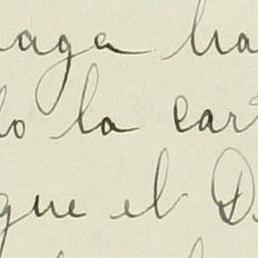 haga ha
do la car
que el D